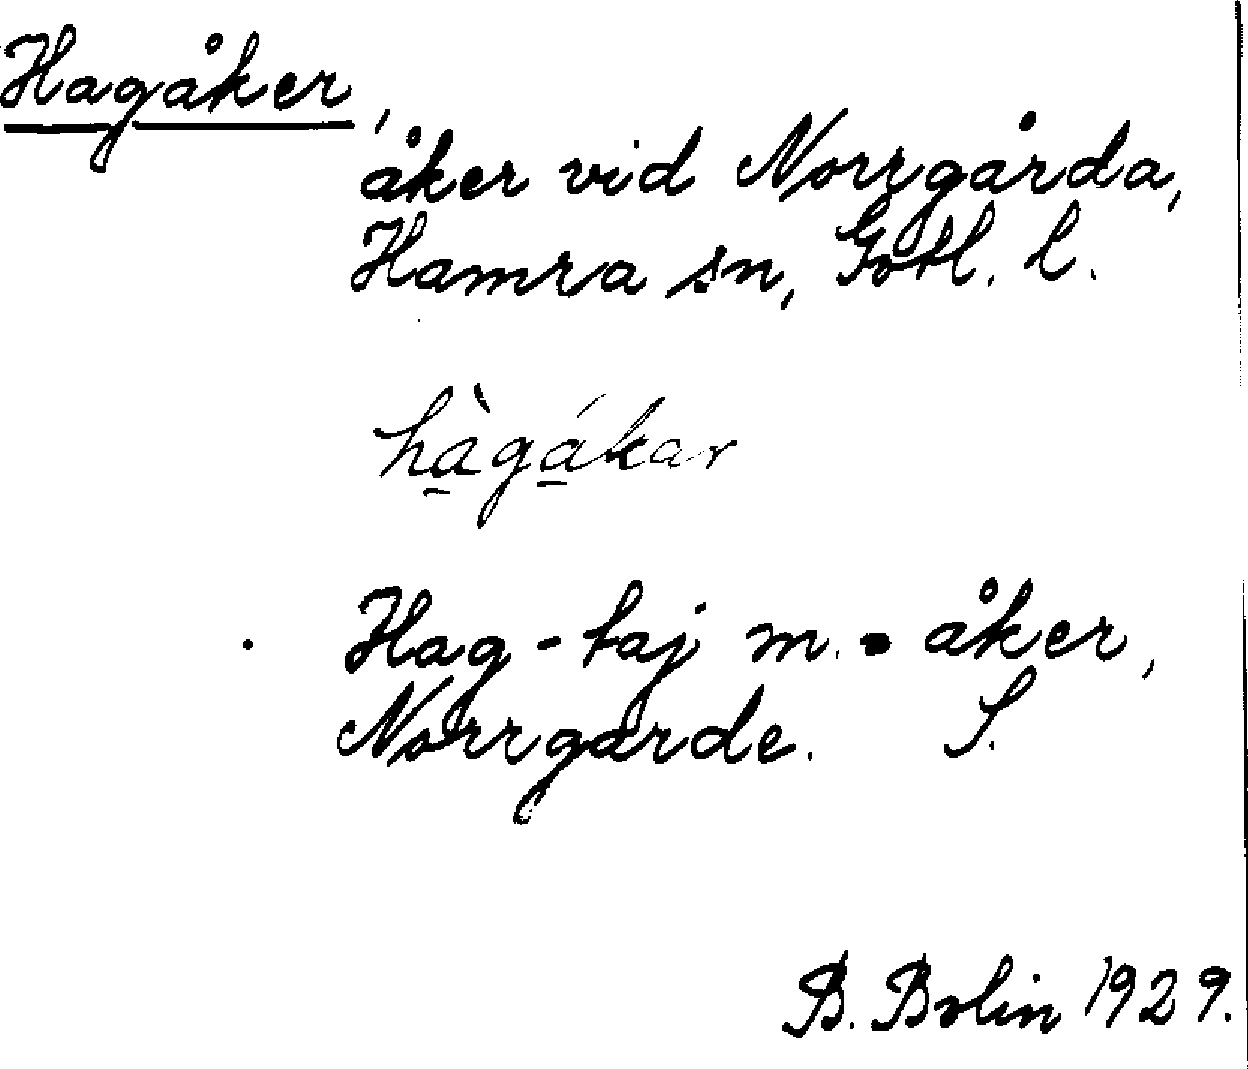 Hagåker,
åker vid Norrgårda,
Hamra sn, Gotl. l.
hà̱gá̱kar
Hag-taj m. = åker,
Norrgårde. S.
B. Bolin 1929.